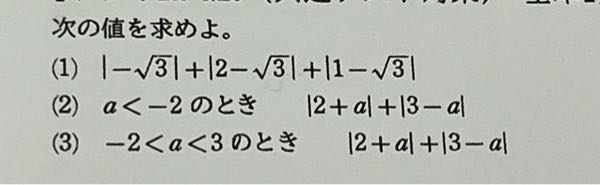 次の値を求めよ。
(1) |−√3|+|2−√3|+|1−√3|
(2) a<−2のとき |2+a|+|3−a|
(3) −2<a<3のとき |2+a|+|3−a|